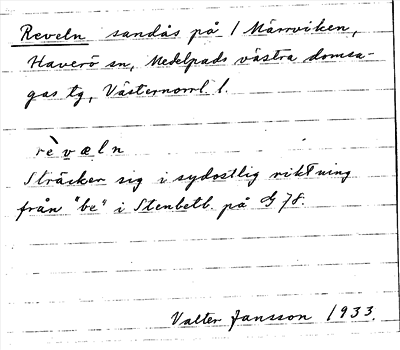 Reveln sandås på 1 Märrviken,
Haverö sn, Medelpads västra domsa-
gas tg, Västernorrl l.
rèvæln
Sträcker sig i sydostlig riktning
från "be" i Stenbetb. på G 78.
Valter Jansson 1933.